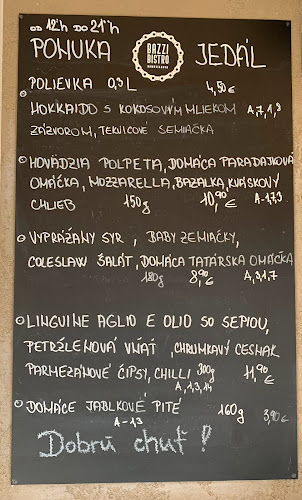 OD 12ºº h DO 21ºº h
PONUKA JEDÁL
BAZZI
BISTRO
POLIEVKA 0,3 L 4,50 €
HOKKAIDO S KOKOSOVÝM MLIEKOM A,7,1,3
ZÁZVOROM, TEKVICOVÉ SEMIAČKA
HOVÄDZIA POLPETA, DOMÁCA PARADAJKOVÁ
OMÁČKA, MOZZARELLA, BAZALKA, KVÁSKOVÝ
CHLIEB 150g 10,90 € A-1,7,3
VYPRÁŽANÝ SYR, BABY ZEMIAČKY,
COLESLAW ŠALÁT, DOMÁCA TATÁRSKA OMÁČKA
180g 8,90 € A,3,1,7
LINGUINE AGLIO E OLIO SO SEPIOU,
PETRŽLENOVÁ VŇAŤ, CHRUMKAVÝ CESNAK
PARMEZÁNOVÉ ČIPSY, CHILLI 300g 11,90 €
A,1,3,14
DOMÁCE JABLKOVÉ PITÉ 160g 3,90 €
A-1,3
Dobrú chuť!